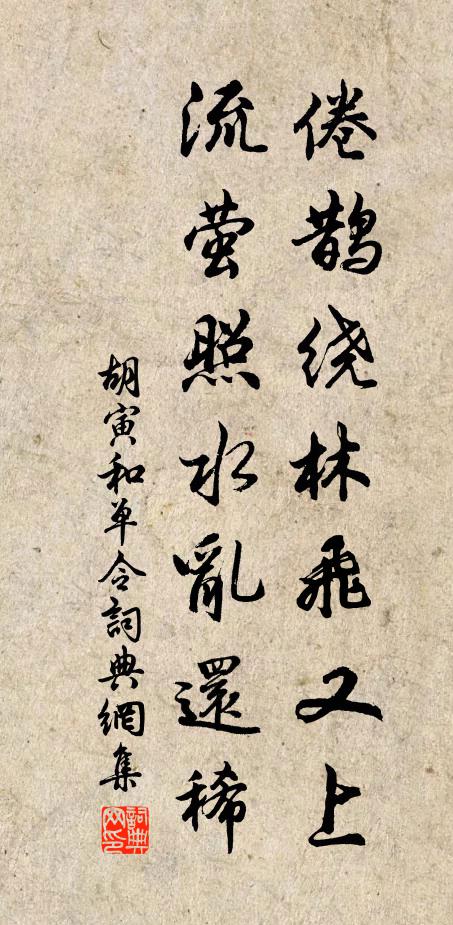 倦鹊绕林飛又上
流萤照水亂還稀
胡寅和单令詞典網集
詞典网印